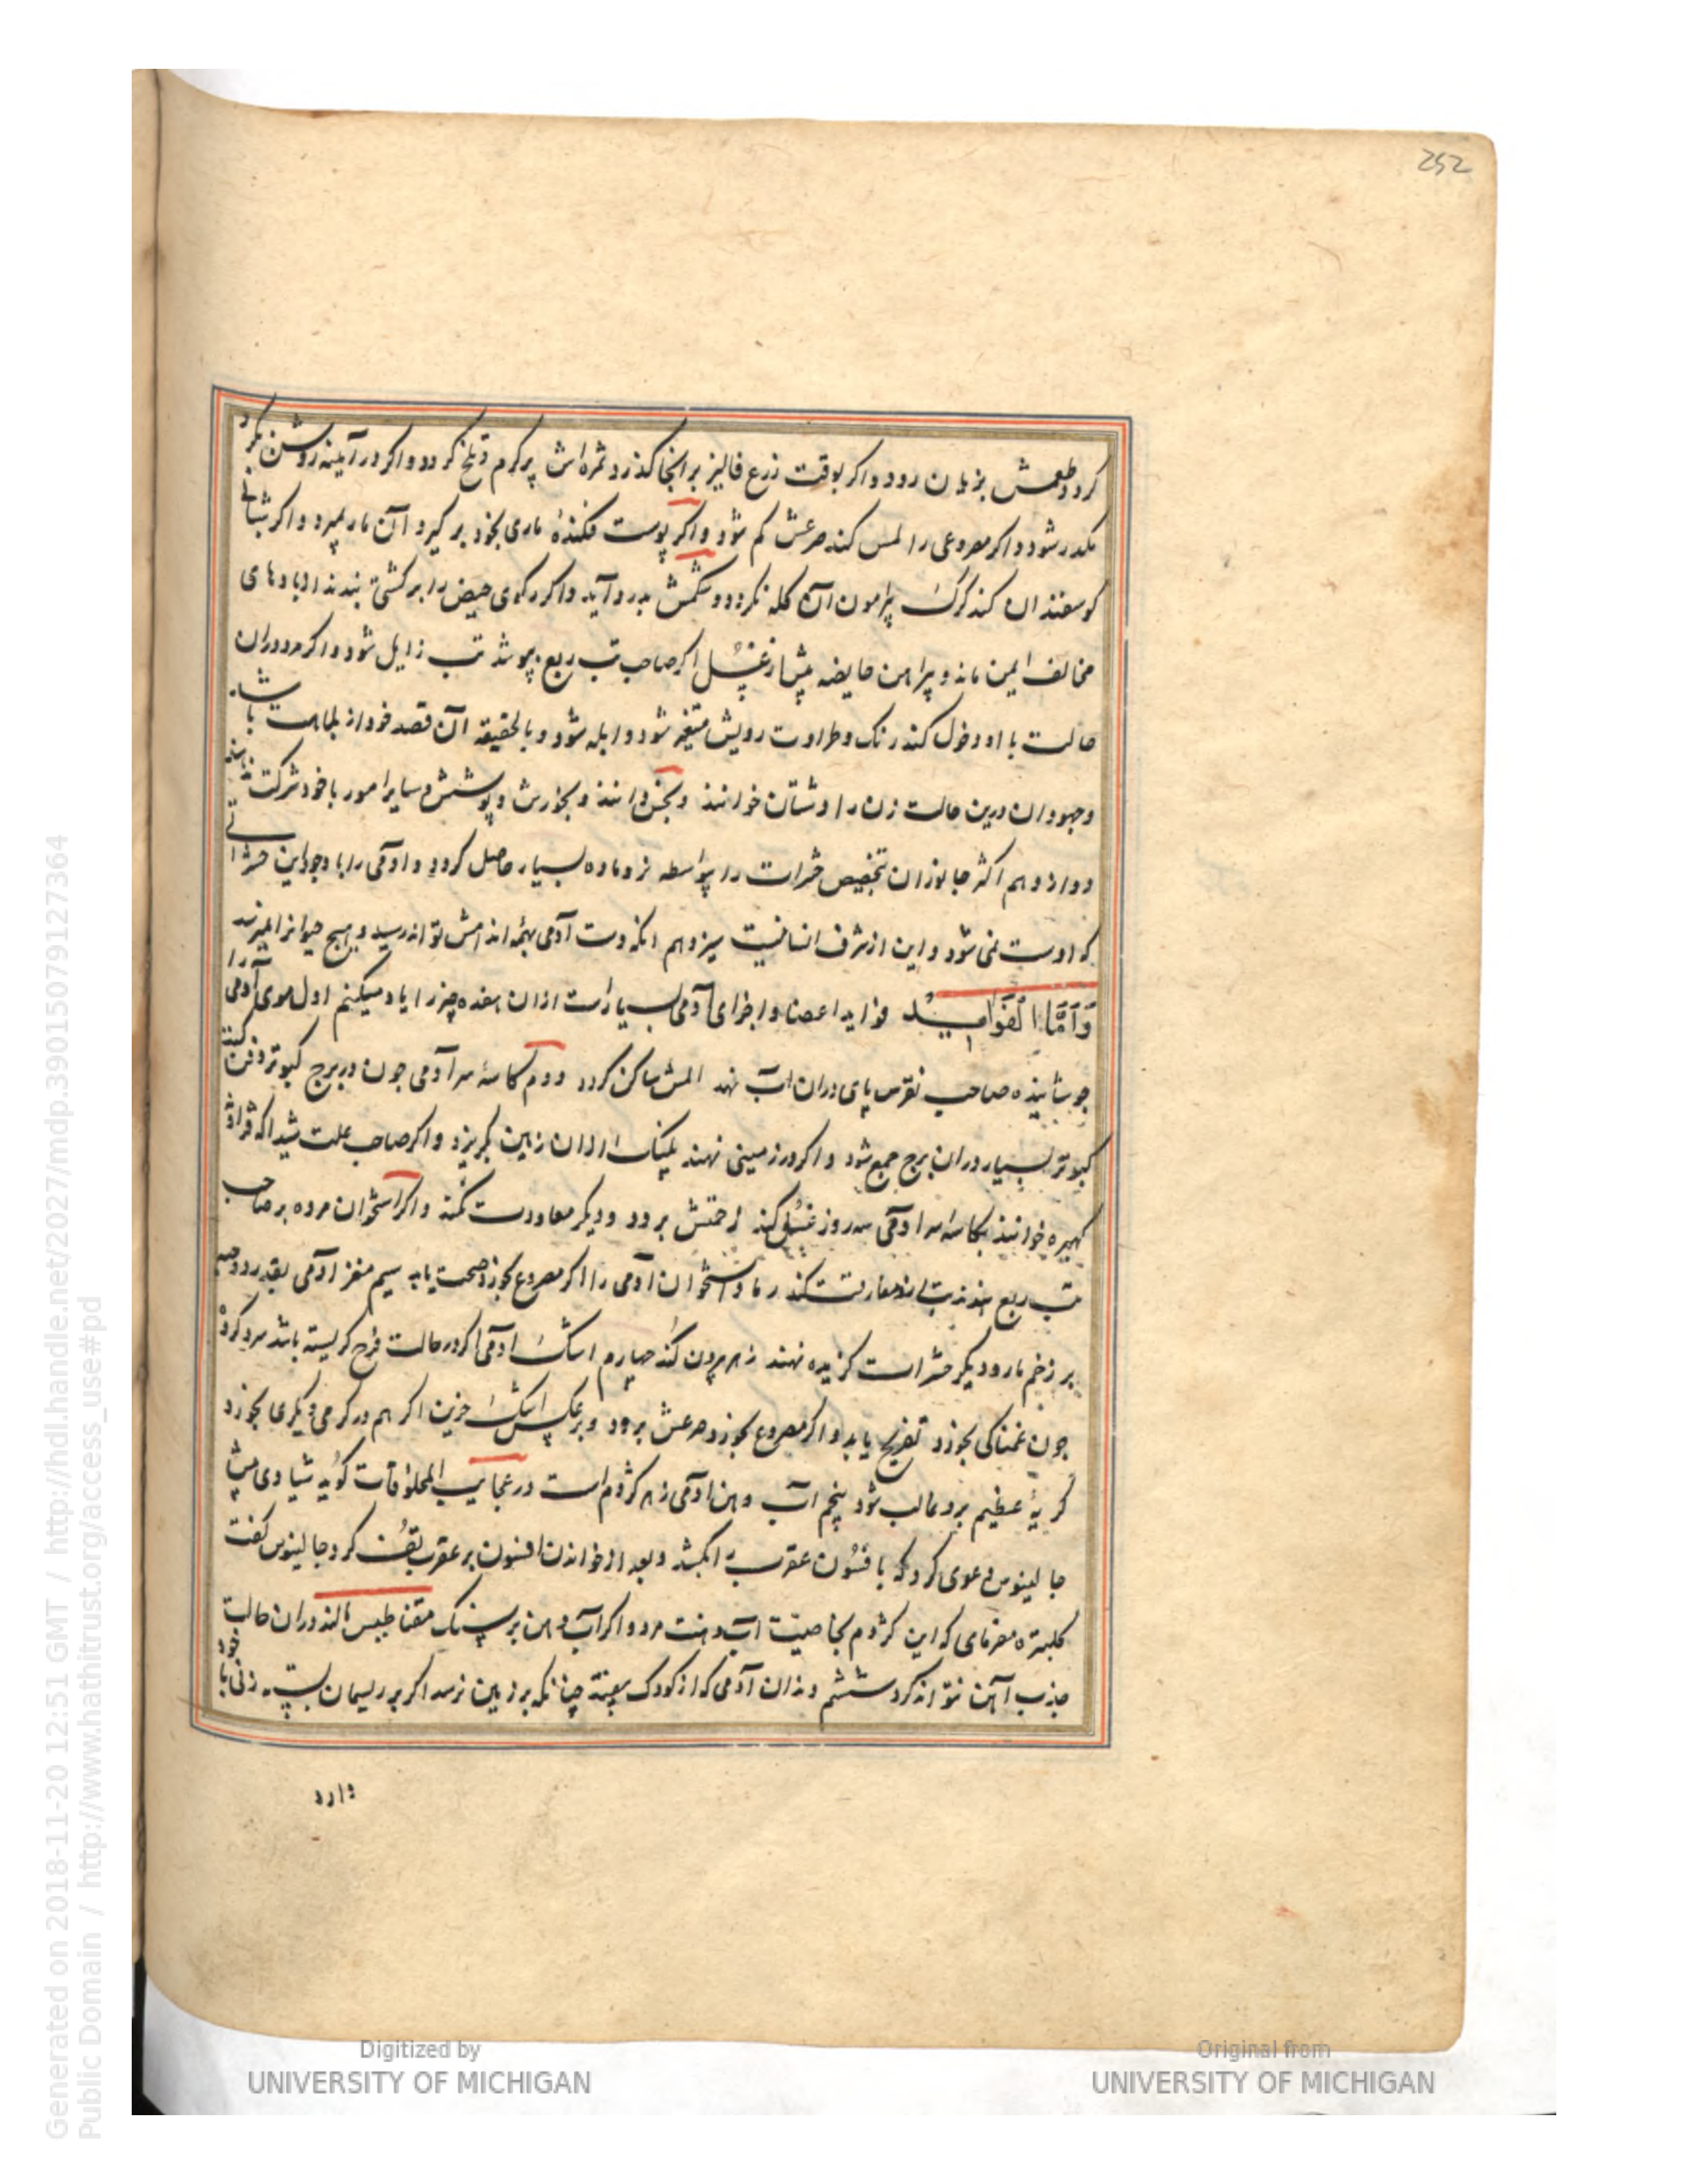 252
کردد وطعمش بزیان رود و اکر بوقت زرع فالیز بر انجا کذرد ثمره‌اش پر کرم و تلخ کردد و اکر در آیینه روشن نکرد
مکدر شود و اکر مصروعی را لمس کند صرعش کم شود و اکر پوست فکندهٔ ماری بخود بر کیرد آن مار بمیرد و اکر شبانی
کوسفندان کند کرک پیرامون آن کله نکردد و شکمش بدرد آید و اکر رکوی حیض را بر کشتی بندند از بادهای
مخالف ایمن ماند و پیراهن حایضه پیش از غسل اکر صاحب تب ربع بپوشد تب زایل شود و اکر مرد دران
حالت با او دخول کند رنک و طراوت رویش متغیر شود و ابله شود و بالحقیقه آن قصد خود از بلاهت باشد
و جهودان درین حالت زن را دشتان خوانند و نجس دانند و بخورش و پوشش و سایر امور با خود شرکت ندهند
دوازدهم اکثر جانوران بتخصیص حشرات را بواسطه نر و ماده بسیار حاصل کردد و آدمی را با وجود این حشراتی
که اوست نمی شود و این از شرف انسانیت سیزدهم انکه دست آدمی بهمه اندامش تواند رسید و هیچ حیوانرا میسر نیست
وَاَمَّا الفَوَایِد فواید اعضا و اجزای آدمی بسیارست ازان هفده چیز را یاد میکنم اول موی آدمی را
جوشانیده صاحب نقرس پای دران اب نهد المش ساکن کردد دوم کاسهٔ سر آدمی جون در برج کبوتر دفن کنند
کبوتر بسیار دران برج جمع شود و اکر در زمینی نهند پلنک ازان زمین بکریزد و اکر صاحب علت شیدا که
کهیره خوانند بکاسهٔ سر آدمی سه روز غسل کند زحمتش برود و دیکر معاودت نکند و اکر استخوان مرده بر صاحب
تب ربع بندند تب ازو مفارقت کند رماد استخوان آدمی را اکر مصروع بخورد صحت یابد سیم مغز آدمی بقدر دو حبه
بر زخم مار و دیکر حشرات کزیده نهند زهر بیرون کند چهارم اشک آدمی اکر در حالت فرح کریسته باشد سرد کرده
جون غمناکی بخورد تفریح یابد و اکر مصروع بخورد صرعش برود و بر عکس اشک حزین اکر هم در کرمی دیکری بخورد
کریهٔ عظیم برو غالب شود پنجم اب دهن آدمی زهر کژدم است در عجایب المخلوقات کوید شیادی پیش
جالینوس دعوی کرد که بافسون عقرب را بکشد و بعد از خواندن افسون بر عقرب تف کرد جالینوس کفت
کلبتره مفرمای که این کژدم بخاصیت اب دهنت مرد و اکر آب دهن بر سنک مقناطیس مالند دران حالت
جذب آهن نتواند کرد ششم دندان آدمی که از کودک بیفتد چنانکه بر زمین نرسد اکر بر ریسمان بسته زنی با خود
دارد
Generated on 2018-11-20 12:51 GMT / http://hdl.handle.net/2027/mdp.39015079127364
Public Domain / http://www.hathitrust.org/access_use#pd
Digitized by
UNIVERSITY OF MICHIGAN
Original from
UNIVERSITY OF MICHIGAN